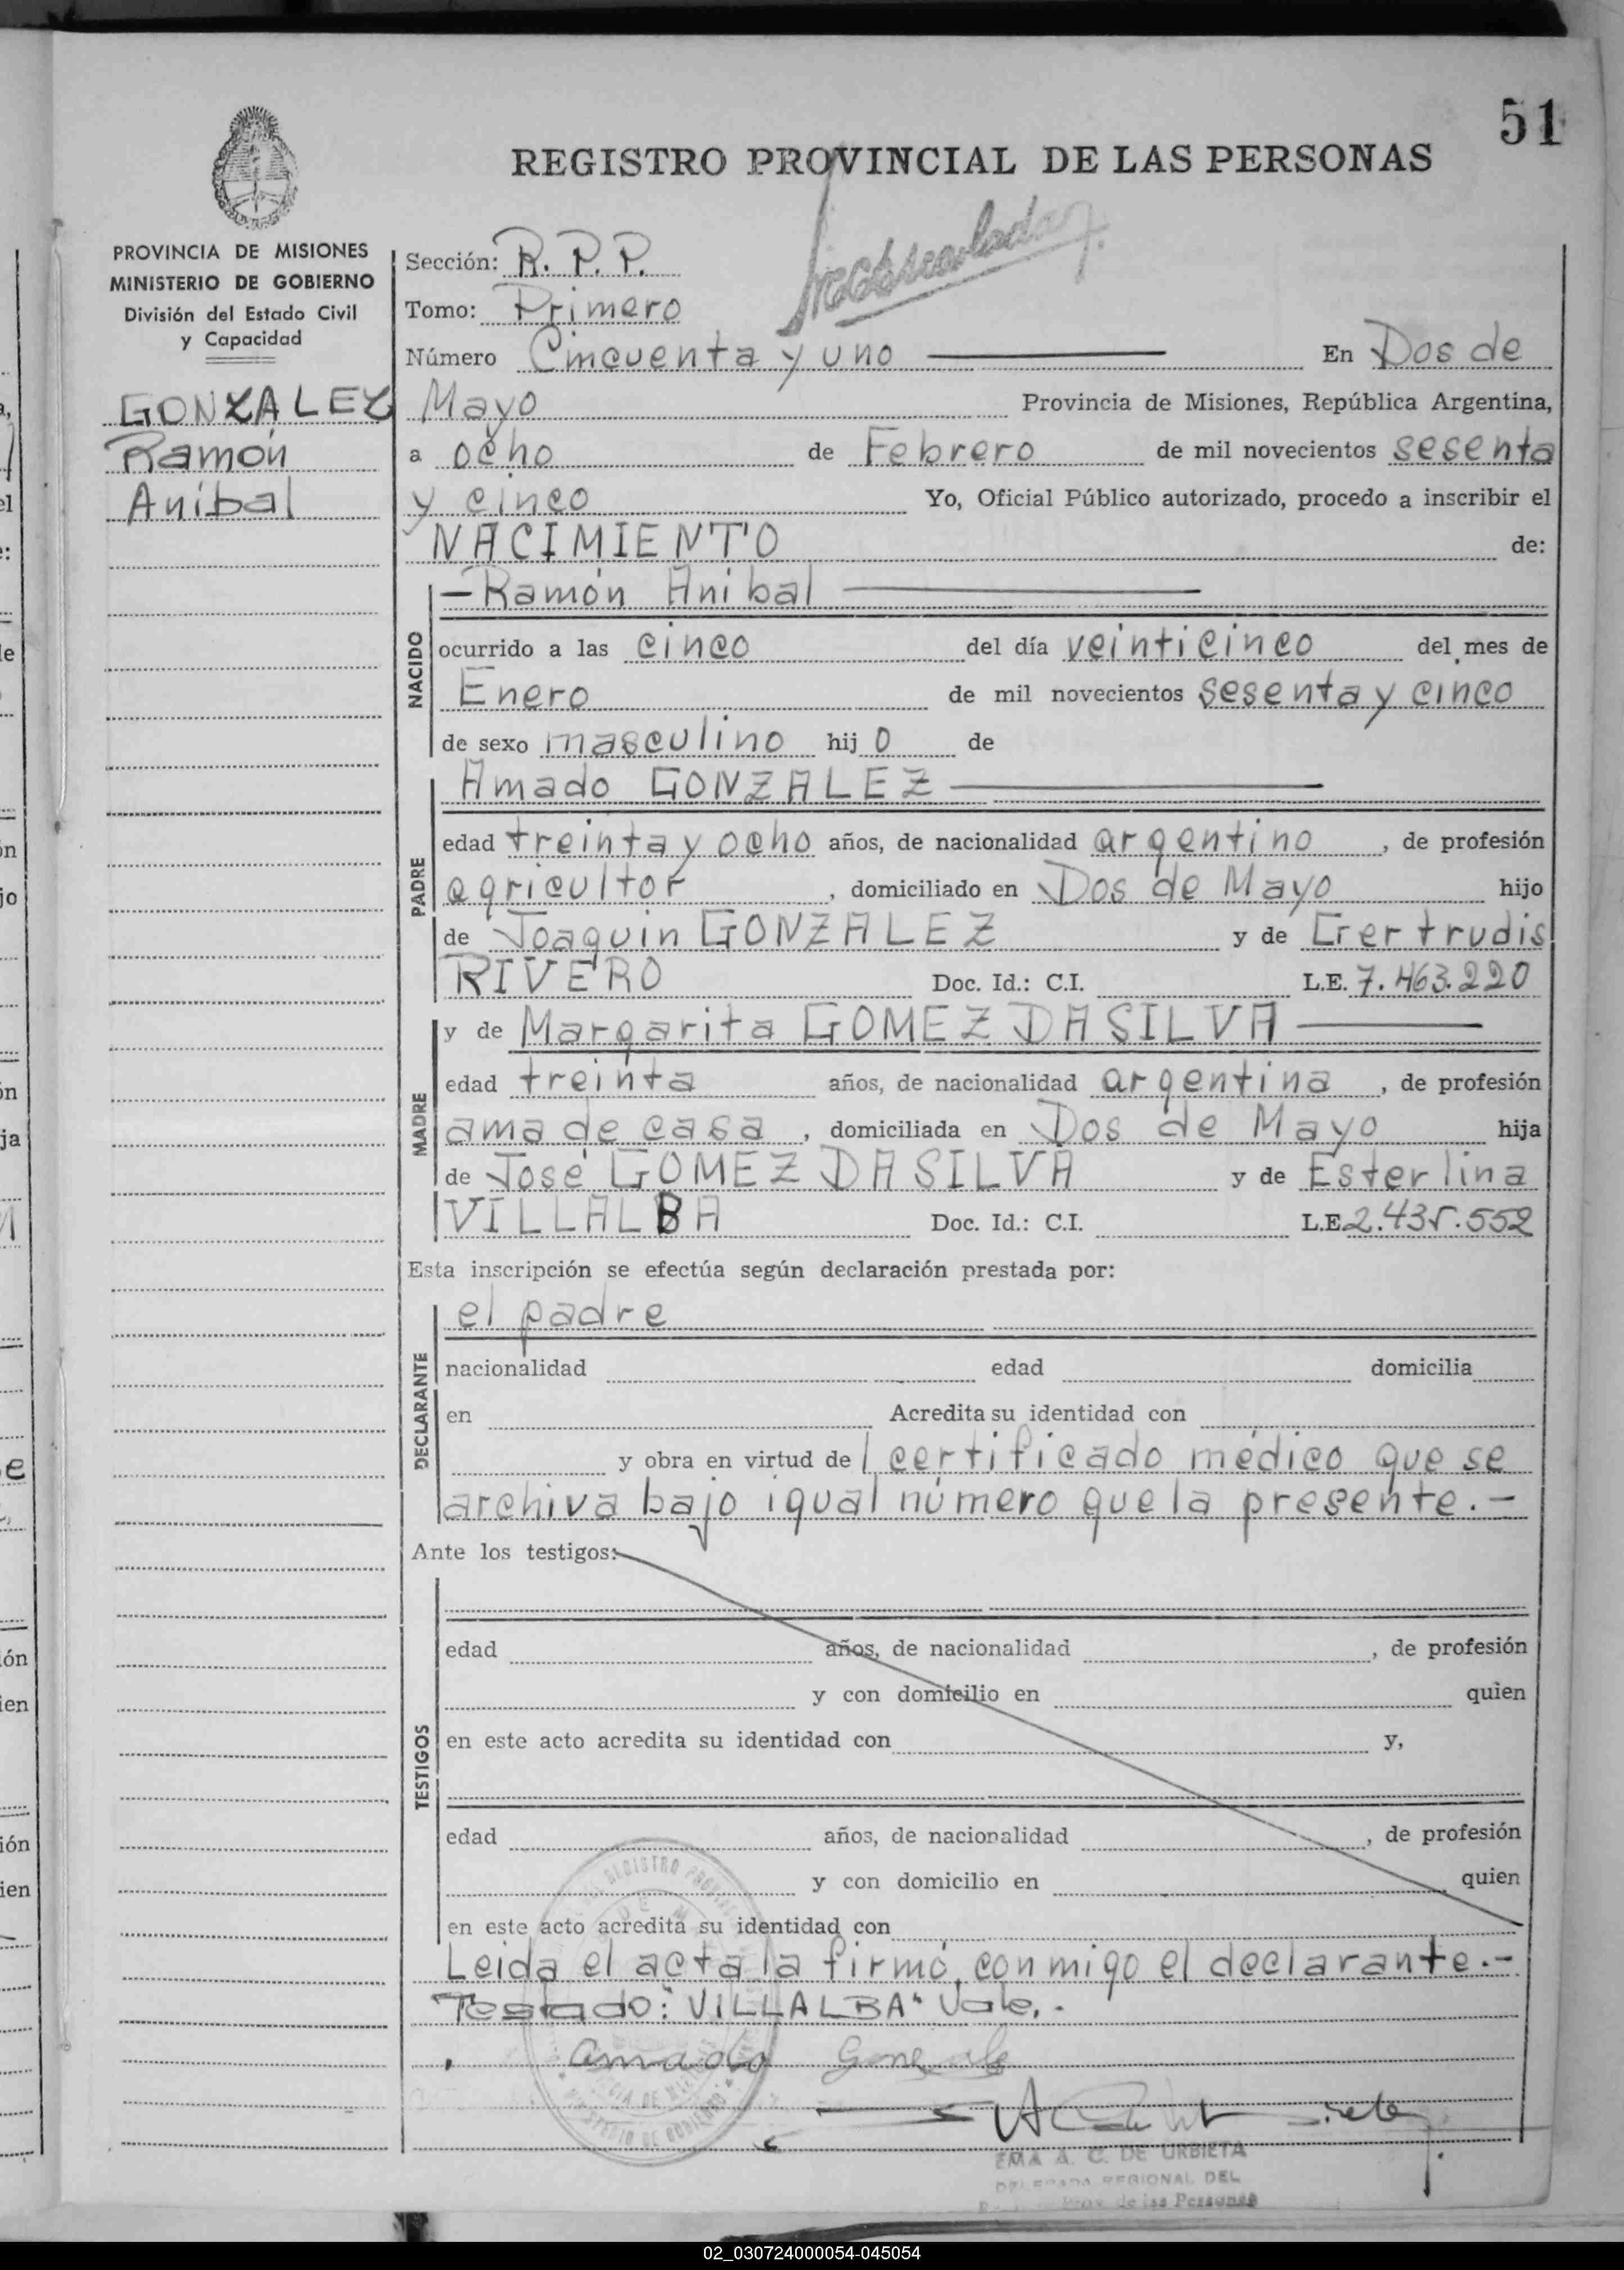 51
REGISTRO PROVINCIAL DE LAS PERSONAS
PROVINCIA DE MISIONES
MINISTERIO DE GOBIERNO
División del Estado Civil
y Capacidad
GONZALEZ
Ramón
Aníbal
Sección: R. P. P.
Tomo: Primero
Número Cincuenta y uno En Dos de
Mayo Provincia de Misiones, República Argentina,
a ocho de Febrero de mil novecientos sesenta
y cinco Yo, Oficial Público autorizado, procedo a inscribir el
NACIMIENTO de:
NACIDO
—Ramón Anibal
ocurrido a las cinco del día veinticinco del mes de
Enero de mil novecientos sesenta y cinco
de sexo masculino hij o de
PADRE
Amado GONZALEZ
edad treinta y ocho años, de nacionalidad argentino, de profesión
agricultor, domiciliado en Dos de Mayo hijo
de Joaquin GONZALEZ y de Gertrudis
RIVERO Doc. Id.: C.I. L.E. 7.463.220
MADRE
y de Margarita GOMEZ DA SILVA
edad treinta años, de nacionalidad argentina, de profesión
ama de casa, domiciliada en Dos de Mayo hija
de José GOMEZ DA SILVA y de Esterlina
VILLALBA Doc. Id.: C.I. L.E. 2.435.552
Esta inscripción se efectúa según declaración prestada por:
DECLARANTE
el padre
nacionalidad edad domicilia
en Acredita su identidad con
y obra en virtud de l certificado médico que se
archiva bajo igual número que la presente.-
Ante los testigos:
TESTIGOS
edad años, de nacionalidad , de profesión
y con domicilio en quien
en este acto acredita su identidad con y,
edad años, de nacionalidad , de profesión
y con domicilio en quien
en este acto acredita su identidad con
Leida el acta la firmó conmigo el declarante.-
Testado: "VILLALBA" Vale.-
Amado Gonzalez
EMA A. C. DE URBIETA
DELEGADA REGIONAL DEL
Prov. de las Personas
02_030724000054-045054